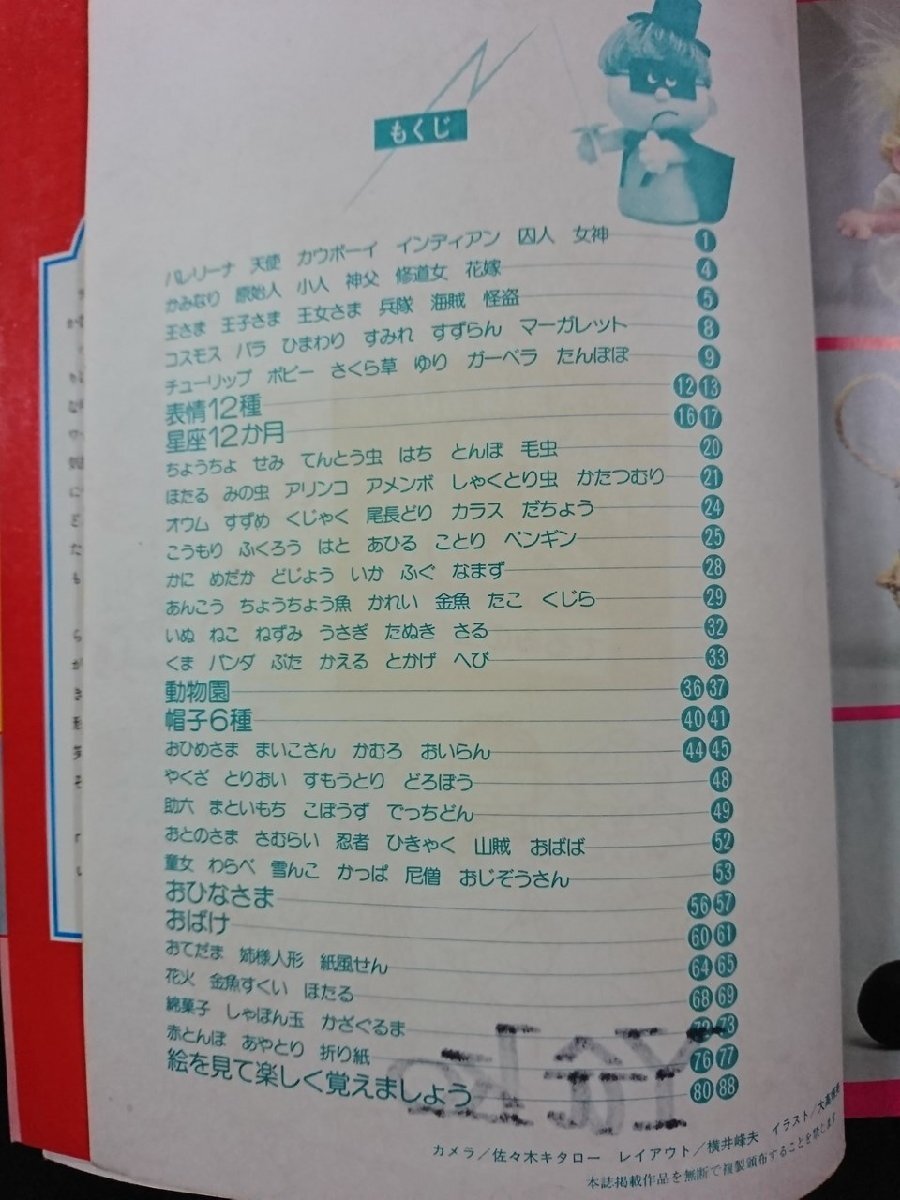 もくじ
バレリーナ 天使 カウボーイ インディアン 囚人 女神 1
かみなり 原始人 小人 神父 修道女 花嫁 4
王さま 王子さま 王女さま 兵隊 海賊 怪盗 5
コスモス バラ ひまわり すみれ すずらん マーガレット 8
チューリップ ポピー さくら草 ゆり ガーベラ たんぽぽ 9
表情12種 12 13
星座12か月 16 17
ちょうちょ せみ てんとう虫 はち とんぼ 毛虫 20
ほたる みの虫 アリンコ アメンボ しゃくとり虫 かたつむり 21
オウム すずめ くじゃく 尾長どり カラス だちょう 24
こうもり ふくろう はと あひる ことり ペンギン 25
かに めだか どじょう いか ふぐ なまず 28
あんこう ちょうちょう魚 かれい 金魚 たこ くじら 29
いぬ ねこ ねずみ うさぎ たぬき さる 32
くま パンダ ぶた かえる とかげ へび 33
動物園 36 37
帽子6種 40 41
おひめさま まいこさん かむろ おいらん 44 45
やくざ とりおい すもうとり どろぼう 48
助六 まといもち こぼうず でっちどん 49
おとのさま さむらい 忍者 ひきゃく 山賊 おばば 52
童女 わらべ 雪んこ かっぱ 尼僧 おじぞうさん 53
おひなさま 56 57
おばけ 60 61
おてだま 姉様人形 紙風せん 64 65
花火 金魚すくい ほたる 68 69
綿菓子 しゃぼん玉 かざぐるま 72 73
赤とんぼ あやとり 折り紙 76 77
絵を見て楽しく覚えましょう 80 88
カメラ/佐々木キタロー レイアウト/横井峰夫 イラスト/
本誌掲載作品を無断で複製頒布することを禁じます